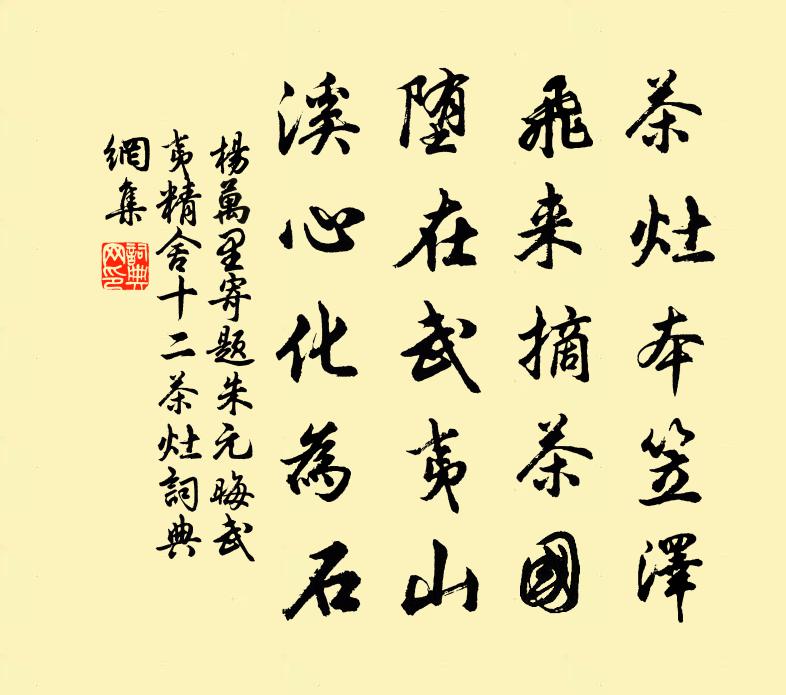 茶灶本笠澤
飛来摘茶國
堕在武夷山
溪心化為石
楊萬里寄題朱元晦武
夷精舍十二茶灶詞典
網集
詞典网印